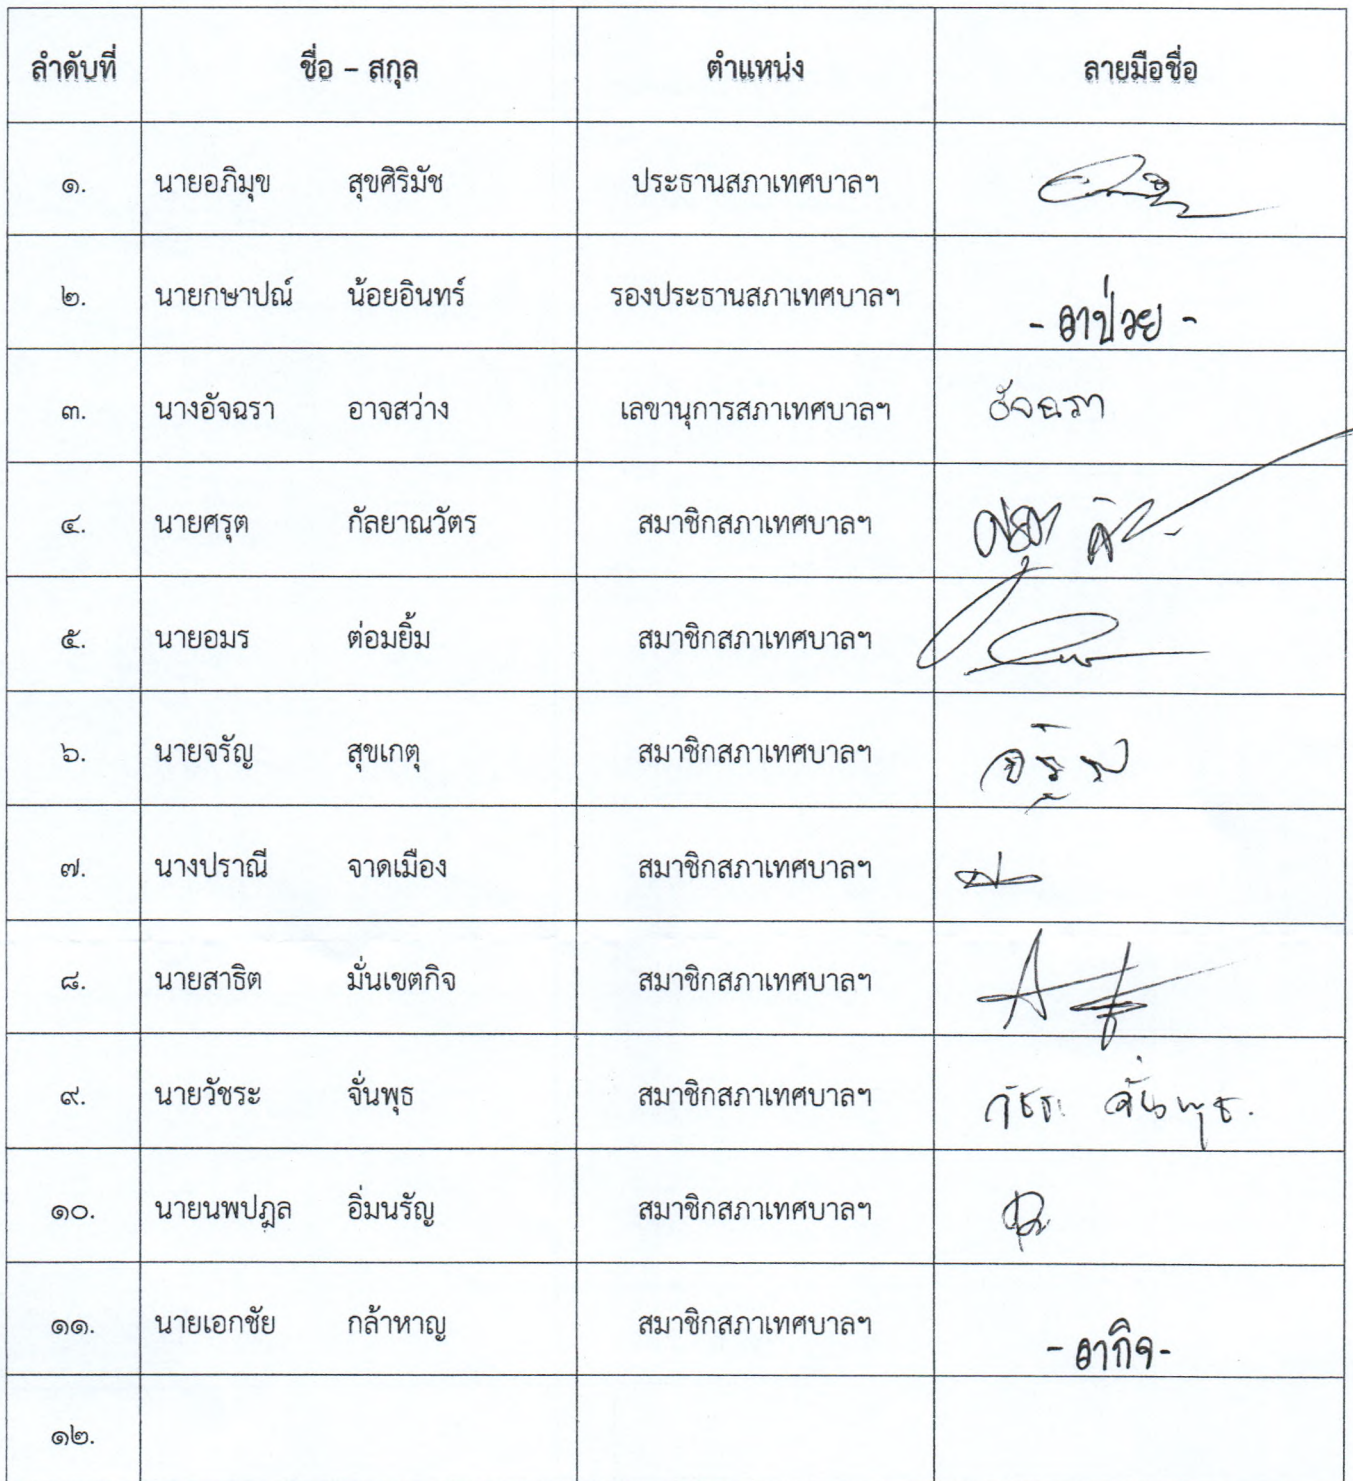 ลำดับที่ ชื่อ – สกุล ตำแหน่ง ลายมือชื่อ
๑. นายอภิมุข สุขศิริมัช ประธานสภาเทศบาลฯ
๒. นายกษาปณ์ น้อยอินทร์ รองประธานสภาเทศบาลฯ - ลาป่วย -
๓. นางอัจฉรา อาจสว่าง เลขานุการสภาเทศบาลฯ อัจฉรา
๔. นายศรุต กัลยาณวัตร สมาชิกสภาเทศบาลฯ
๕. นายอมร ต่อมยิ้ม สมาชิกสภาเทศบาลฯ
๖. นายจรัญ สุขเกตุ สมาชิกสภาเทศบาลฯ
๗. นางปราณี จาดเมือง สมาชิกสภาเทศบาลฯ
๘. นายสาธิต มั่นเขตกิจ สมาชิกสภาเทศบาลฯ
๙. นายวัชระ จั่นพุธ สมาชิกสภาเทศบาลฯ วัชระ จั่นพุธ.
๑๐. นายนพปฎล อิ่มนรัญ สมาชิกสภาเทศบาลฯ
๑๑. นายเอกชัย กล้าหาญ สมาชิกสภาเทศบาลฯ - ลากิจ-
๑๒.